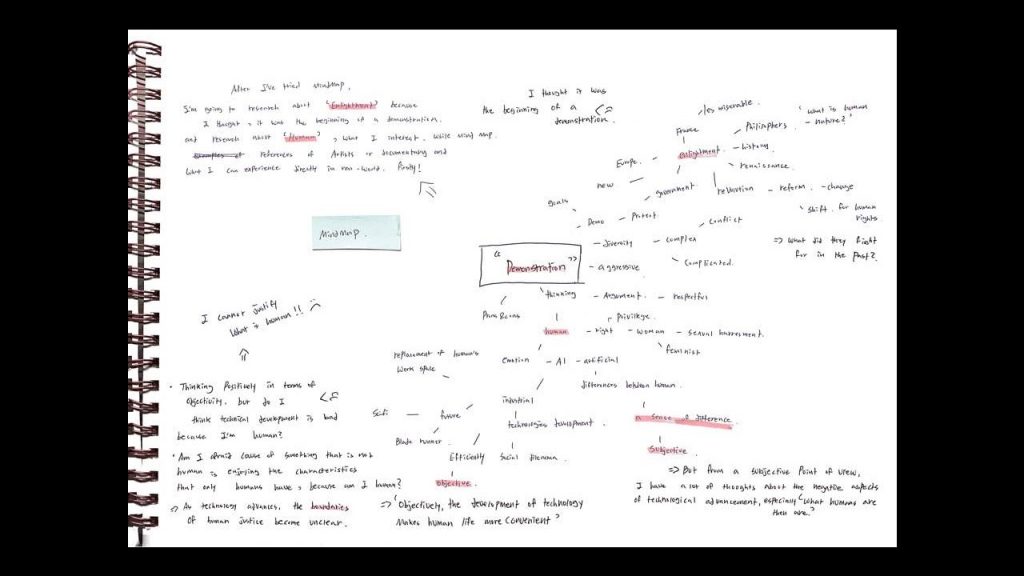 After I've tried mindmap,
I'm going to research about 'Enlightment' because
I thought, it was the beginning of a demonstration.
and research about 'Human', what I interest, while mind map.
references of Artists or documentary and
what I can experience directly in real-world. Firstly!
I thought it was
the beginning of a
demonstration.
Les miserable.
France
Philosphers
"what is human
nature?"
Europe.
enlightment
history
renaissance.
new
government
revolution - reform. - change
goals
Demo - Protest
conflict
shift for human
rights.
diversity - complex
=> What did they fight
for in the past?
Mindmap.
"Demonstration"
aggressive.
Complicated.
thinking - Argument. - respectful
I cannot justify
What is human!!
privilege.
human - right - woman - sexual harresment.
feminist
replacement of human's
work
emotion - AI - artificial
differences between human.
• Thinking Positively in terms of
objectivity, but do I
think technical development is bad
because I'm human?
industrial
Scifi - future
technologies development.
a sense of difference.
Blade runner.
Efficiently
Social dilemma.
Subjective.
• Am I afraid cause of something that is not
human is enjoying the characteristics
that only humans have, because am I human?
objective.
=> But from a subjective point of view,
I have a lot of thoughts about the negative aspects
of technological advancement, especially "What humans are
then are."
=> As technology advances, the boundaries
of human justice become unclear.
=> 'Objectively, the development of technology
makes human life more convenient'